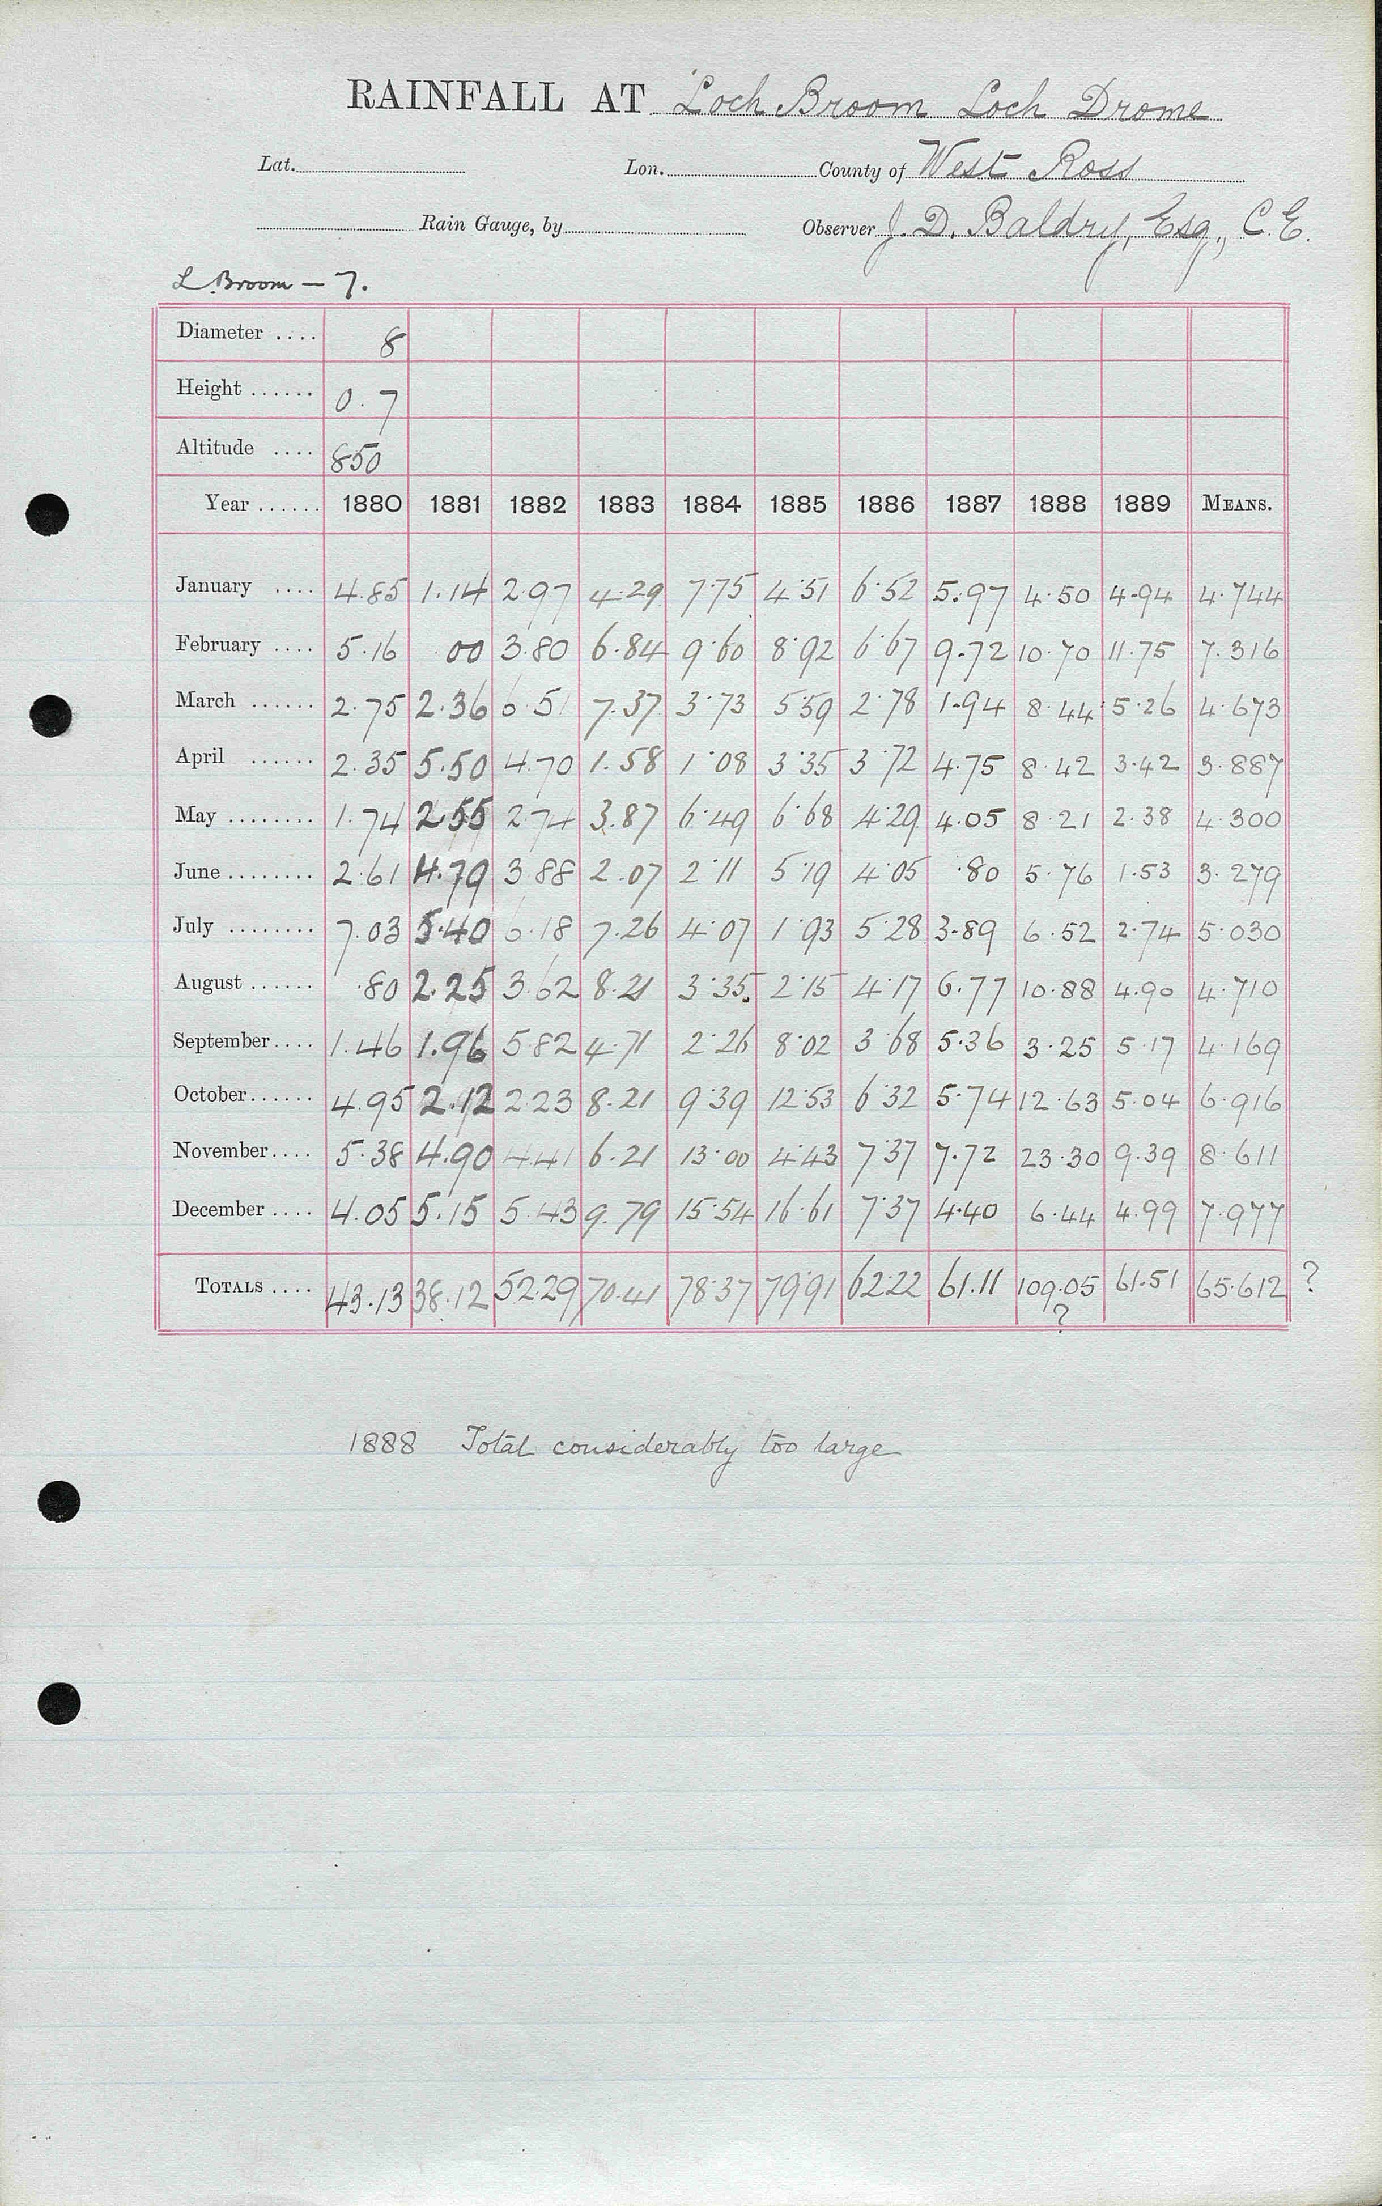 RAINFALL AT Loch Broom Loch Drome
Lat. Lon. County of West Ross
Rain Gauge, by Observer J. D. Baldry, Esq., C.E.
L Broom — 7.
Diameter .... 8
Height ...... 0.7
Altitude .... 850
Year ...... 1880 1881 1882 1883 1884 1885 1886 1887 1888 1889 MEANS.
January .... 4.85 1.14 2.97 4.29 7.75 4.51 6.52 5.97 4.50 4.94 4.744
February .... 5.16 .00 3.80 6.84 9.60 8.92 6.67 9.72 10.70 11.75 7.316
March ...... 2.75 2.36 6.51 7.37 3.73 5.59 2.78 1.94 8.44 5.26 4.673
April ...... 2.35 5.50 4.70 1.58 1.08 3.35 3.72 4.75 8.42 3.42 3.887
May ........ 1.74 2.55 2.74 3.87 6.49 6.68 4.29 4.05 8.21 2.38 4.300
June ........ 2.61 4.79 3.88 2.07 2.11 5.19 4.05 .80 5.76 1.53 3.279
July ........ 7.03 5.40 6.18 7.26 4.07 1.93 5.28 3.89 6.52 2.74 5.030
August ...... .80 2.25 3.62 8.21 3.35 2.15 4.17 6.77 10.88 4.90 4.710
September .... 1.46 1.96 5.82 4.71 2.26 8.02 3.68 5.36 3.25 5.17 4.169
October ...... 4.95 2.12 2.23 8.21 9.39 12.53 6.32 5.74 12.63 5.04 6.916
November .... 5.38 4.90 4.41 6.21 13.00 4.43 7.37 7.72 23.30 9.39 8.611
December .... 4.05 5.15 5.43 9.79 15.54 16.61 7.37 4.40 6.44 4.99 7.977
TOTALS .... 43.13 38.12 52.29 70.41 78.37 79.91 62.22 61.11 109.05 61.51 65.612 ?
?
1888 Total considerably too large